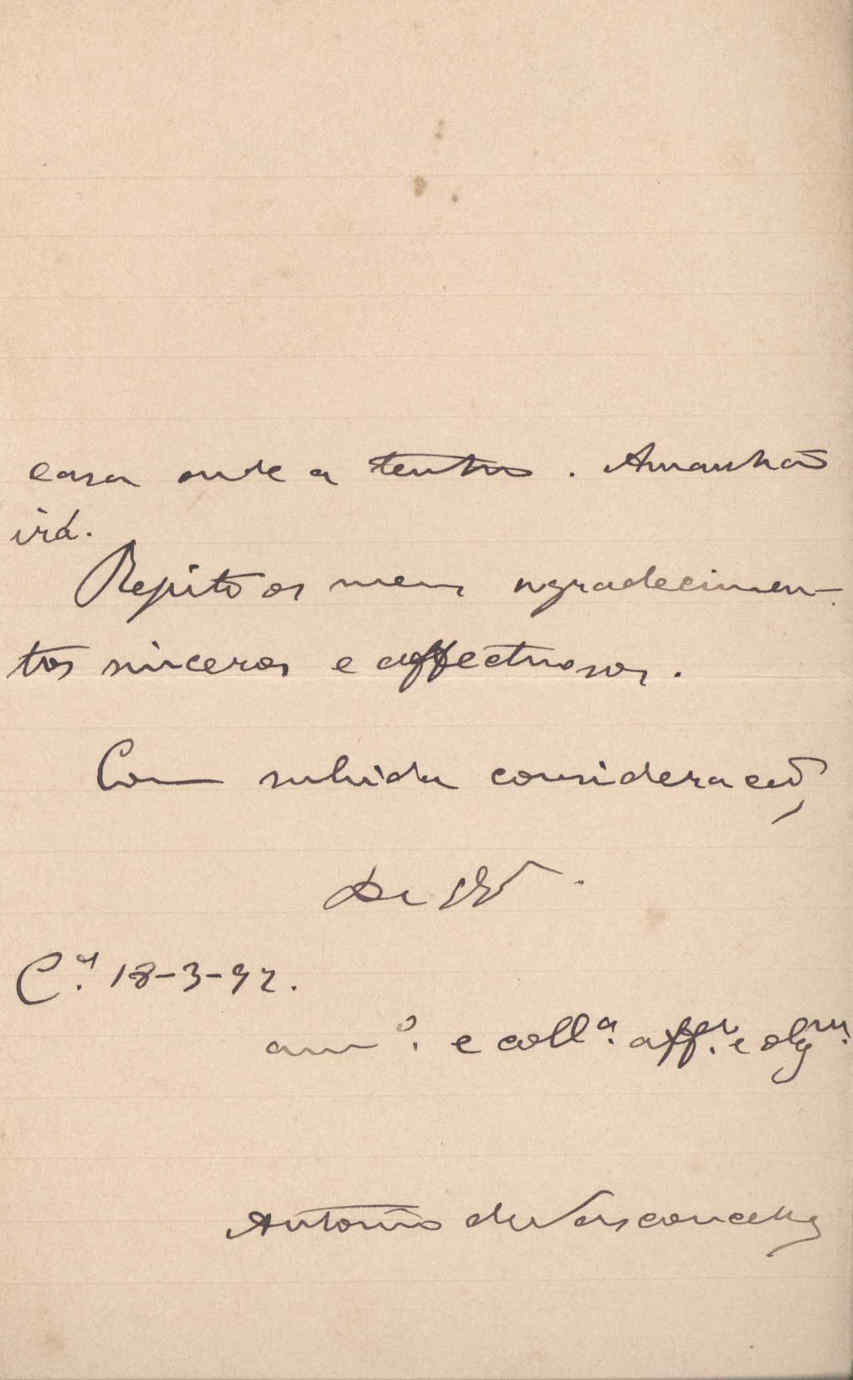 casa onde a tenho. Amanhã
irá.
Repito os meus agradecimen-
tos sinceros e affectuosos.
Com subida consideração
De V.
C.ª 18-3-92.
am.º e coll.ª aff.º e obg.mo
Antonio de Vasconcellos